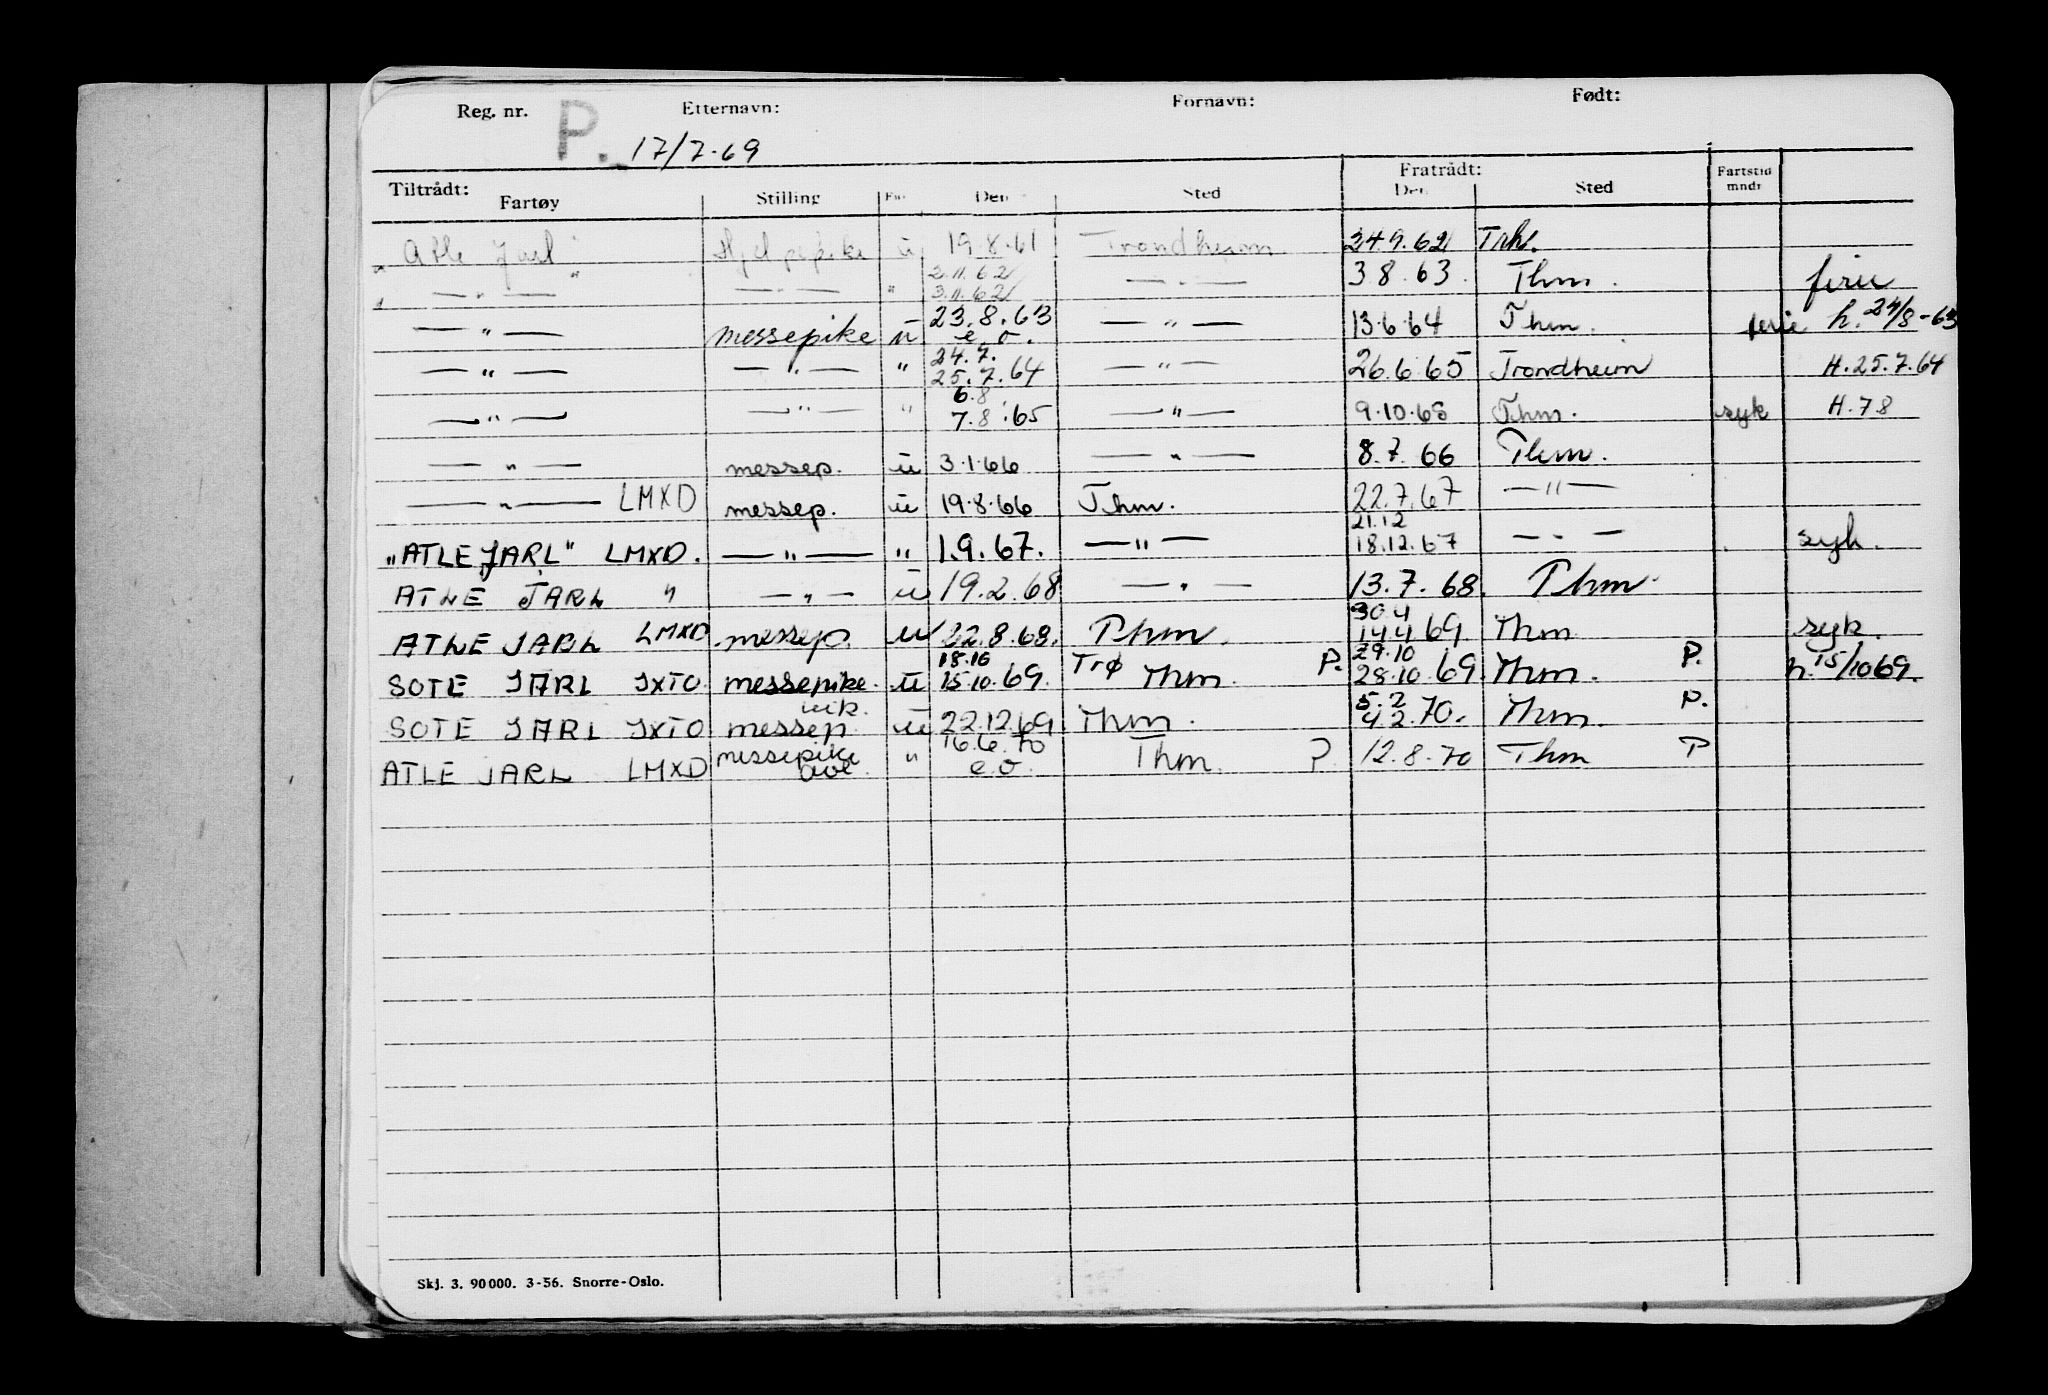 Reg. nr. P. 17/7-69 Etternavn: Fornavn: Født:
Tiltrådt: Fratrådt:
Fartøy Stilling Den Sted Den Sted Fartstid mndr
"Atle Jarl" Hjelpepike ü 19.8.61 Trondheim 24.9.62 Trh.
" —"— —"— " 2.11.62 3.11.62 —"— 3.8.63. Thm. ferie
—"— messepike ü 23.8.63 e.o. —"— 13.6.64 Thm. ferie h. 24/8-63
—"— —"— " 24.7. 25.7.64 —"— 26.6.65 Trondheim H.25.7.64
—"— —"— " 6.8 7.8.65 —"— 9.10.65 Thm. syk H.7.8
—"— messep. ü 3.1.66 —"— 8.7.66 Thm.
—"— LMXD messep. ü 19.8.66 Thm. 22.7.67 —"—
"ATLE JARL" LMXD. —"— " 1.9.67. —"— 21.12 18.12.67 —"— syk.
ATLE JARL " —"— ü 19.2.68 —"— 13.7.68. Thm
ATLE JARL LMXD messep. ü 22.8.68. Thm. 30.4 14.4 69 Thm syk.
SOTE JARL JXTO messepike. ü 18.10 15.10.69. Trø Thm. P. 29.10 28.10 69 Thm. P. h. 15/10 69.
SOTE JARL JXTO messep. vik. ü 22.12.69 Thm. 5.2 4.2.70. Thm. P.
ATLE JARL LMXD messepike avl. " 16.6.70 e.o. Thm. P. 12.8.70 Thm P
Skj. 3. 90 000. 3-56. Snorre-Oslo.